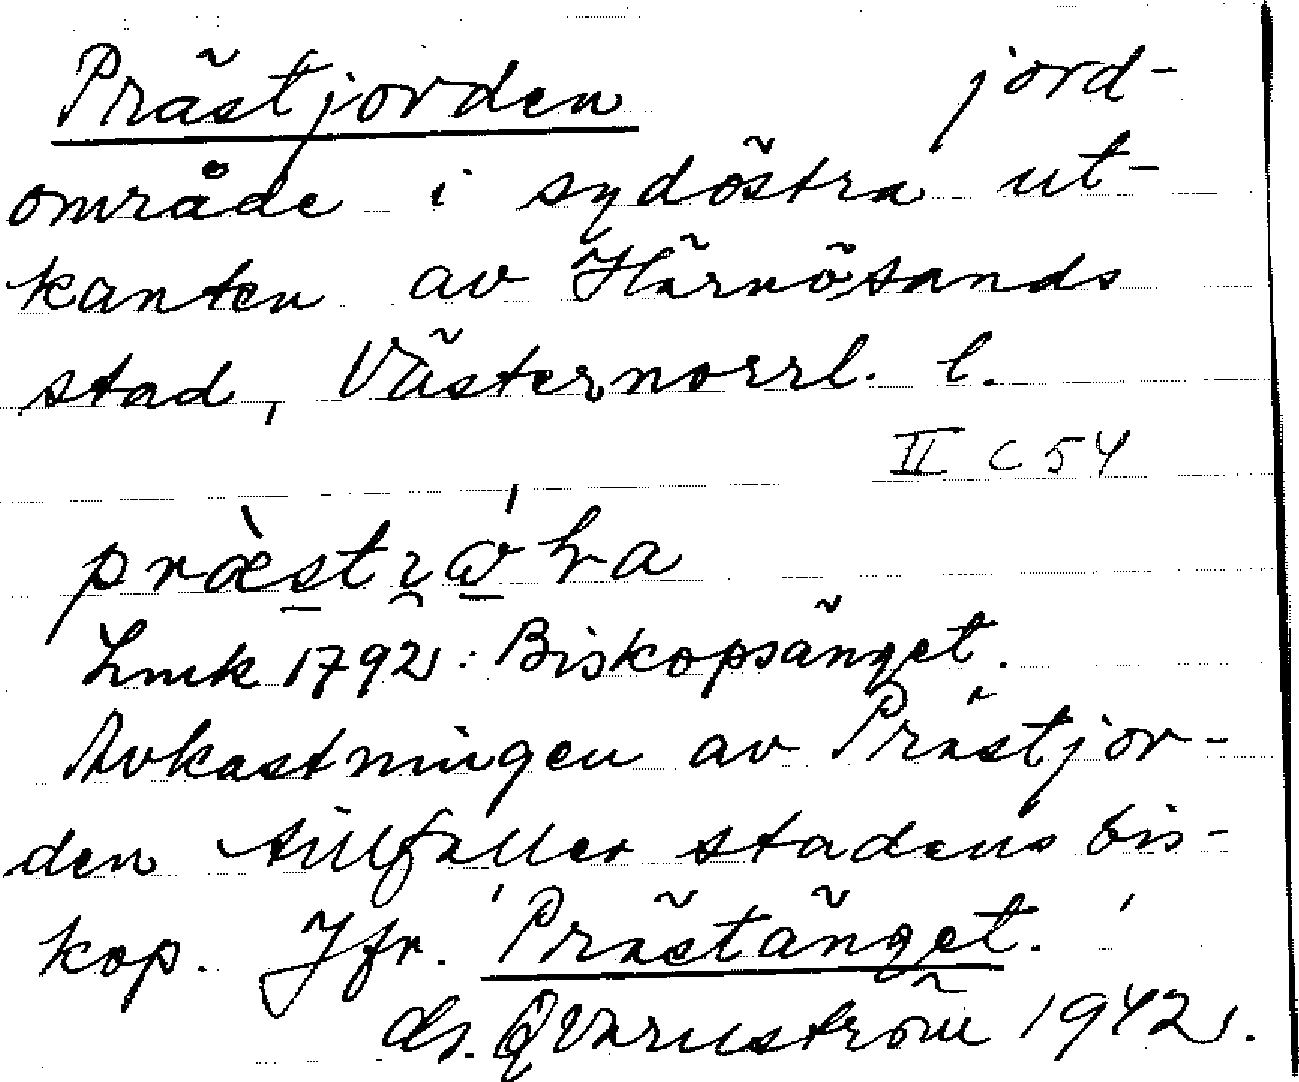 Prästjorden jord-
område i sydöstra ut-
kanten av Härnösands
stad, Västernorrl. l.
II C 54
Lmk 1792: Biskopsänget.
Avkastningen av Prästjor-
den tillfaller stadens bis-
kop. Jfr. Prästänget.
Qvarnström 1942.